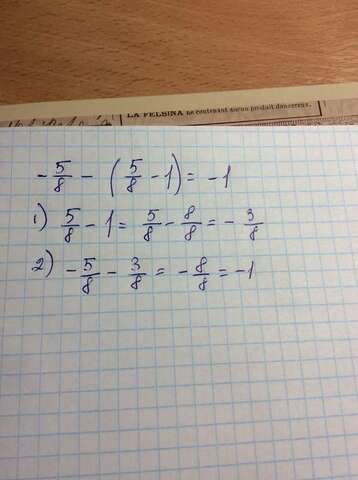 LA FELSINA ne contenant aucun produit dangereux.
-5/8 - (5/8 - 1) = -1
1) 5/8 - 1 = 5/8 - 8/8 = - 3/8
2) -5/8 - 3/8 = -8/8 = -1